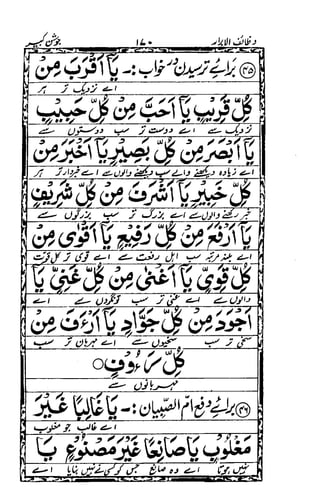 وظائف الابرار ۱۷۰ جوشن کبیر
۳۵ برائے ترسیدن در خواب :- یَا اَقْرَبَ مِنْ
اے نزدیک تر ہر
كُلِّ قَرِیْبٍ یَا اَحَبَّ مِنْ كُلِّ حَبِیْبٍ
نزدیک سے اے دوست تر سب دوستوں سے
یَا اَبْصَرَ مِنْ كُلِّ بَصِیْرٍ یَا اَخْبَرَ مِنْ
اے زیادہ دیکھنے والے سب دیکھنے والوں سے اے خبردار تر ہر
كُلِّ خَبِیْرٍ یَا اَشْرَفَ مِنْ كُلِّ شَرِیْفٍ
خبر رکھنے والوں سے اے بزرگ تر سب بزرگوں سے
یَا اَرْفَعَ مِنْ كُلِّ رَفِیْعٍ یَا اَقْوٰی مِنْ
اے بلند مرتبہ سب اہل رفعت سے اے قوی تر کل قوت
كُلِّ قَوِیٍّ یَا اَغْنٰی مِنْ كُلِّ غَنِیٍّ یَا
والوں سے اے غنی تر سب تونگروں سے اے
اَجْوَدَ مِنْ كُلِّ جَوَّادٍ یَا اَرْءَفَ مِنْ
سخی تر سب سخیوں سے اے مہربان تر سب
كُلِّ رَءُوْفٍ ○
مہربانوں سے
۳۶ برائے دفع ام الصبیان :- یَا غَالِبًا غَیْرَ
اے غالب جو مغلوب
مَغْلُوْبٍ یَا صَانِعًا غَیْرَ مَصْنُوْعٍ یَا
نہیں ہوتا اے وہ صانع جس کو کسی نے نہیں بنایا اے